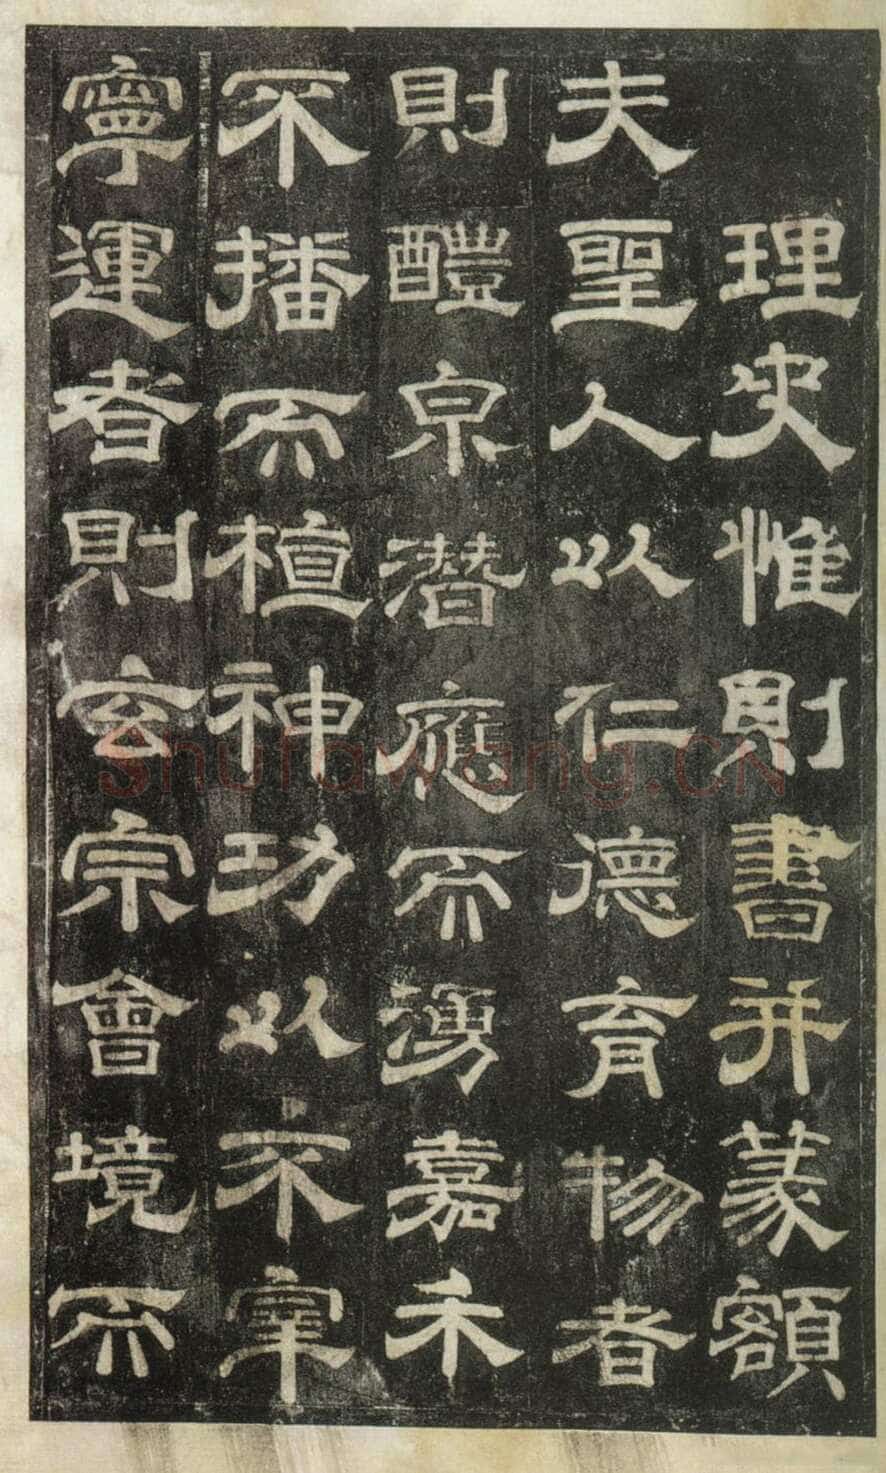 理史惟則書并篆額
夫聖人以仁德育物者
則醴泉潛應而湧嘉禾
不播而植神功以不宰
寧運者則玄宗會境而
Shufawang.CN